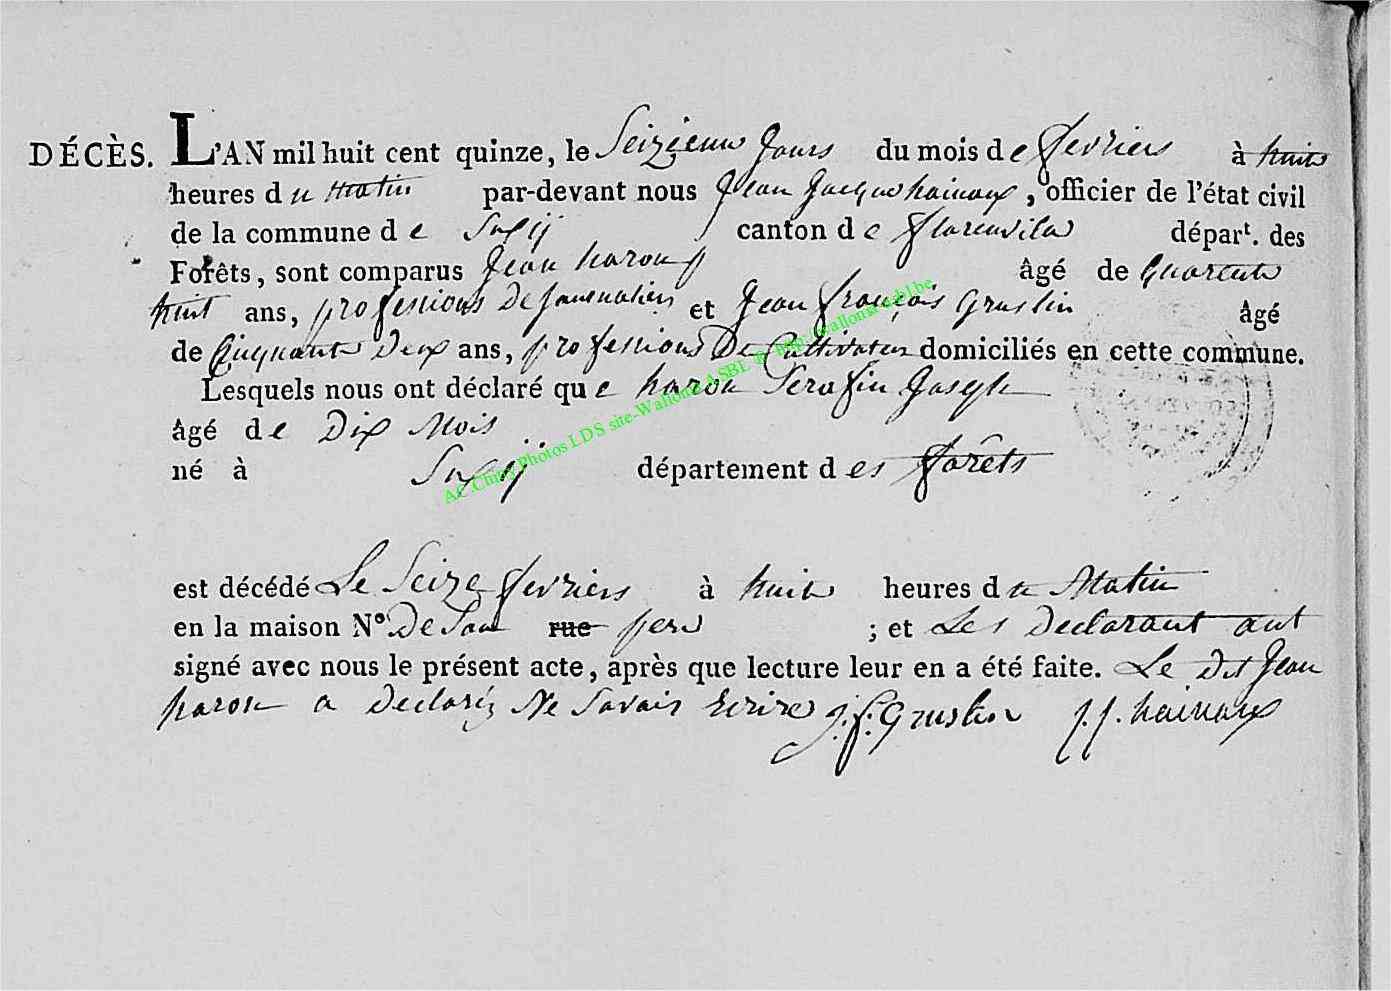 DÉCÈS. L'AN mil huit cent quinze, le Seizieme Jours du mois de fevriers à huit
heures du Matin par-devant nous Jean Jacque hainaux, officier de l'état civil
de la commune de Suxÿ canton de florenville départ. des
Forêts, sont comparus Jean haron âgé de Quarente
huit ans, professions De Journaliers et Jean françois Gruslin âgé
de Cinquante Deux ans, professions De Cultivateur domiciliés en cette commune.
Lesquels nous ont déclaré que haron Serafin Joseph
âgé de Dix Mois
né à Suxÿ département des forêts
AC Chiny Photos LDS site-Wallonia ASBL @ http://wallonia-asbl.be
est décédé Le Seize fevriers à huit heures du Matin
en la maison N.º De Son rue pere ; et Les Declarant ont
signé avec nous le présent acte, après que lecture leur en a été faite. Le dit Jean
haron a Declaréz Ne Savair Ecrire J. f. Gruslin J. J. hainaux